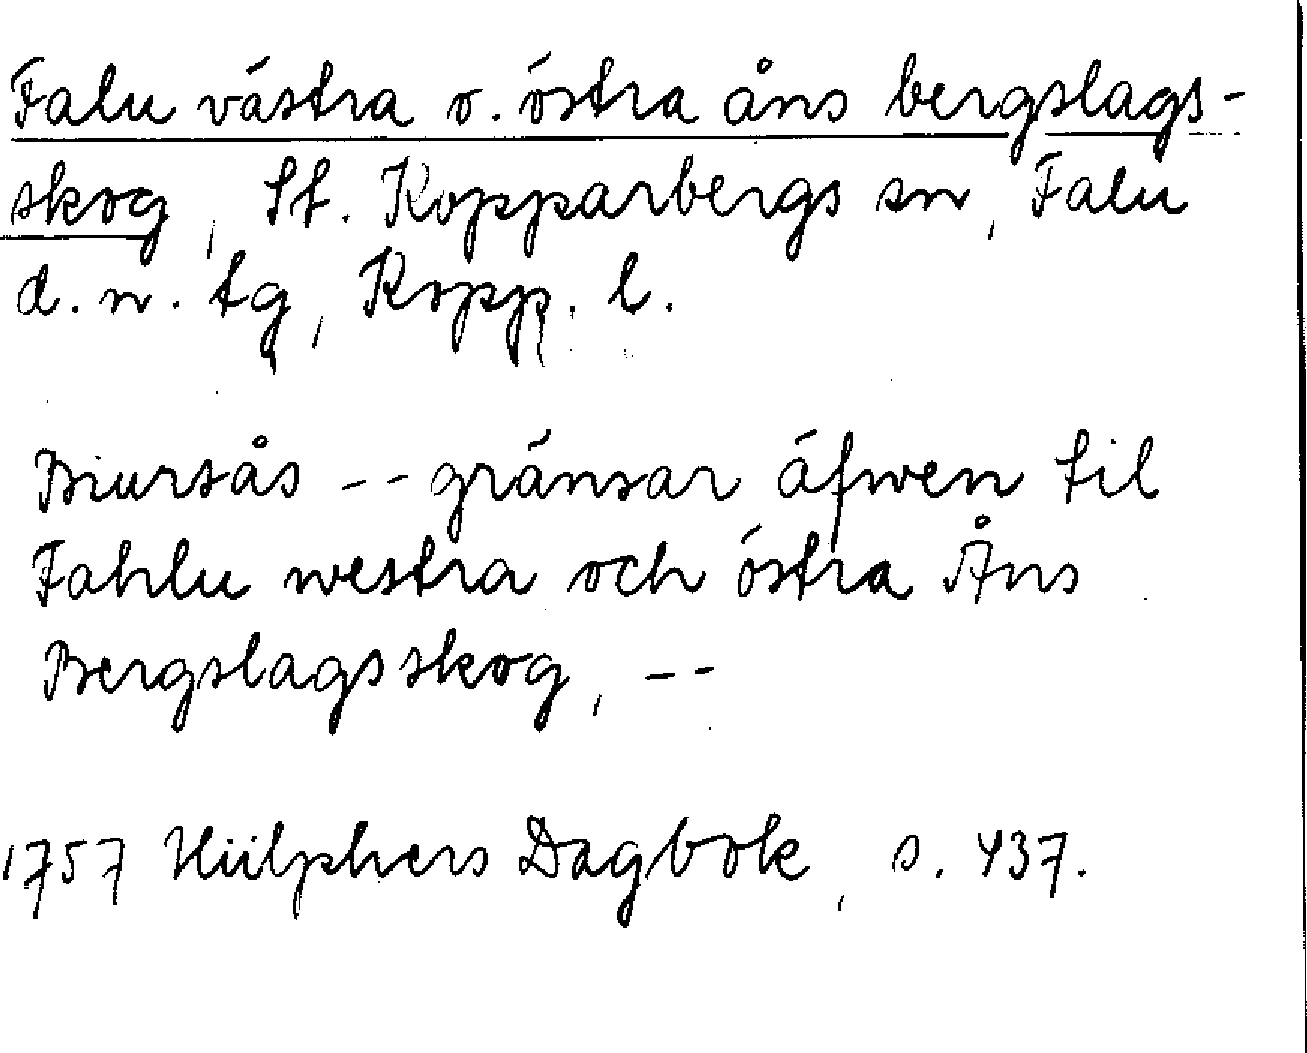 Falu västra o. östra åns bergslags-
skog, St. Kopparbergs sn, Falu
d. n. tg, Kopp. l.
Biursås -- gränsar äfwen til
Fahlu westra och östra Åns
Bergslagsskog, --
1757 Hülphers Dagbok, s. 437.